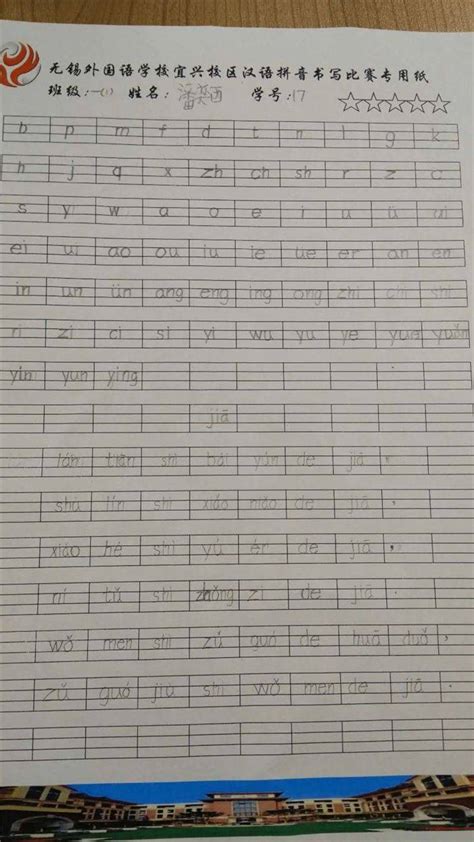 无锡外国语学校宜兴校区汉语拼音书写比赛专用纸
班级:一(1) 姓名: 学号:17
b p m f d t n l g k
h j q x zh ch sh r z c
s y w a o e i u ü ai
ei ui ao ou iu ie üe er an en
in un ün ang eng ing ong zhi chi shi
ri zi ci si yi wu yu ye yue yuan
yin yun ying
jiā
lán tiān shì bái yún de jiā
shù lín shì xiǎo niǎo de jiā ,
xiǎo hé shì yú ér de jiā ,
ní tǔ shì zhǒng zi de jiā .
wǒ men shì zǔ guó de huā duǒ ,
zǔ guó jiù shì wǒ men de jiā .